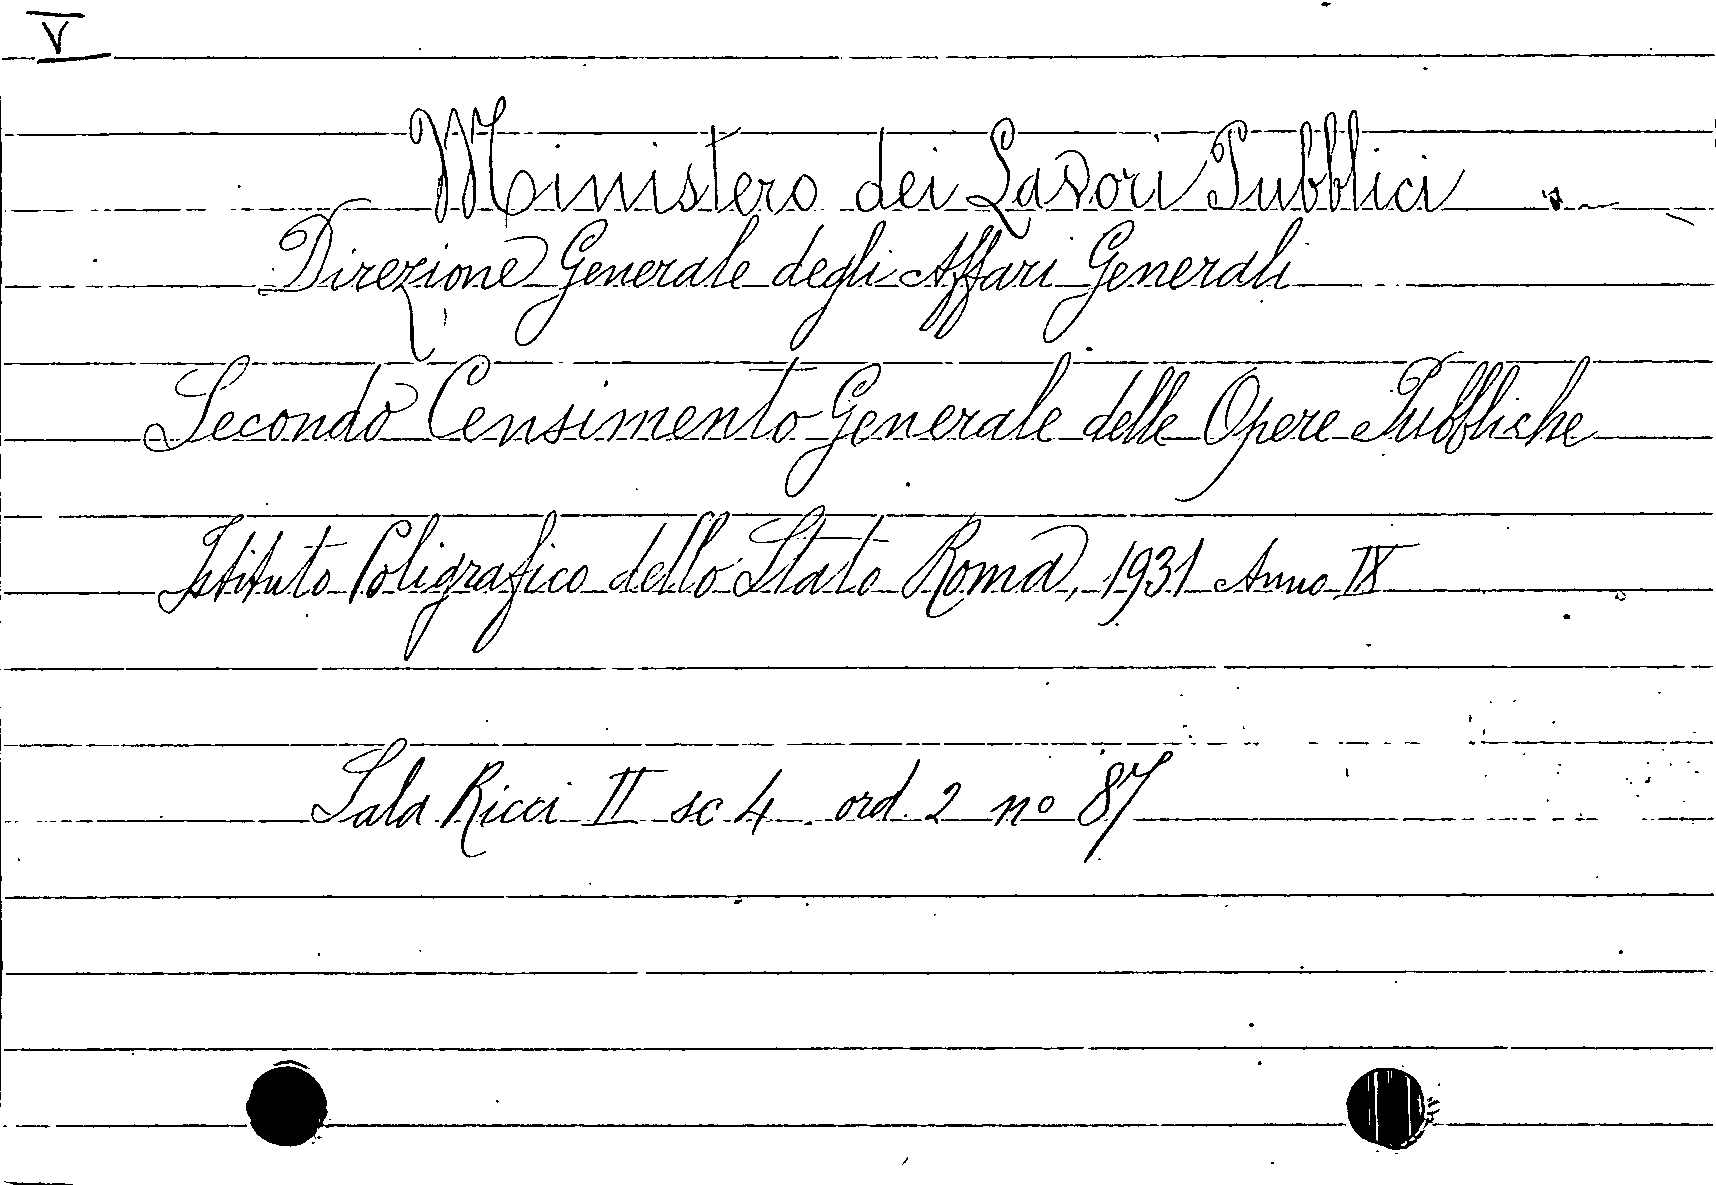 V
Ministero dei Lavori Pubblici
Direzione Generale degli Affari Generali
Secondo Censimento Generale delle Opere Pubbliche
Istituto Poligrafico dello Stato Roma, 1931 Anno IX
Sala Ricci II sc 4 ord. 2 no 87